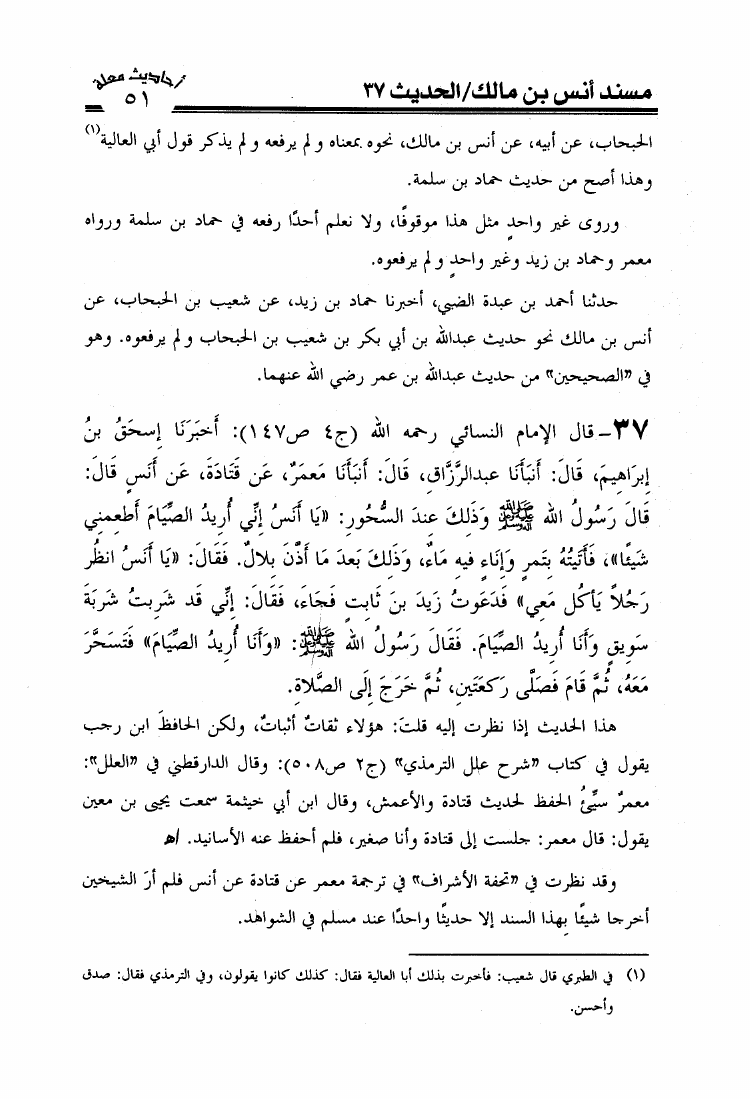 أحاديث معلة
مسند أنس بن مالك/الحديث ٣٧
٥١
الحبحاب، عن أبيه، عن أنس بن مالك، نحوه بمعناه ولم يرفعه ولم يذكر قول أبي العالية(١)
وهذا أصح من حديث حماد بن سلمة.
وروى غير واحدٍ مثل هذا موقوفًا، ولا نعلم أحدًا رفعه في حماد بن سلمة ورواه
معمر وحماد بن زيد وغير واحدٍ ولم يرفعوه.
حدثنا أحمد بن عبدة الضبي، أخبرنا حماد بن زيد، عن شعيب بن الحبحاب، عن
أنس بن مالك نحو حديث عبدالله بن أبي بكر بن شعيب بن الحبحاب ولم يرفعوه. وهو
في "الصحيحين" من حديث عبدالله بن عمر رضي الله عنهما.
٣٧- قال الإمام النسائي رحمه الله (ج٤ ص١٤٧): أَخبَرَنَا إسحَقُ بنُ
إبرَاهِيمَ، قَالَ: أَنبَأَنَا عبدالرَّزَّاقِ، قَالَ: أَنبَأَنَا مَعمَرٌ، عَن قَتَادَةَ، عَن أَنَسٍ قَالَ:
قَالَ رَسُولُ الله ﷺ وَذَلِكَ عندَ السُّحُورِ: «يَا أَنَسُ إِنِّي أُرِيدُ الصِّيَامَ أَطعِمنِي
شَيئًا»، فَأَتَيتُهُ بِتَمرٍ وَإِنَاءٍ فِيهِ مَاءٌ، وَذَلِكَ بَعدَ مَا أَذَّنَ بِلاَلٌ. فَقَالَ: «يَا أَنَسُ انظُر
رَجُلاً يَأكُل مَعِي» فَدَعَوتُ زَيدَ بنَ ثَابِتٍ فَجَاءَ، فَقَالَ: إِنِّي قَد شَرِبتُ شَربَةَ
سَوِيقٍ وَأَنَا أُرِيدُ الصِّيَامَ. فَقَالَ رَسُولُ الله ﷺ: «وَأَنَا أُرِيدُ الصِّيَامَ» فَتَسَحَّرَ
مَعَهُ، ثُمَّ قَامَ فَصَلَّى رَكعَتَينِ، ثُمَّ خَرَجَ إِلَى الصَّلاَةِ.
هذا الحديث إذا نظرت إليه قلتَ: هؤلاء ثقاتٌ أثباتٌ، ولكن الحافظَ ابن رجب
يقول في كتاب "شرح علل الترمذي" (ج٢ ص٥٠٨): وقال الدارقطني في "العلل":
معمرٌ سيِّئُ الحفظ لحديث قتادة والأعمش، وقال ابن أبي خيثمة سمعت يحيى بن معين
يقول: قال معمر: جلست إلى قتادة وأنا صغير، فلم أحفظ عنه الأسانيد. اهـ
وقد نظرت في "تحفة الأشراف" في ترجمة معمر عن قتادة عن أنس فلم أرَ الشيخين
أخرجا شيئًا بهذا السند إلا حديثًا واحدًا عند مسلم في الشواهد.
(١) في الطبري قال شعيب: فأخبرت بذلك أبا العالية فقال: كذلك كانوا يقولون، وفي الترمذي فقال: صدق
وأحسن.